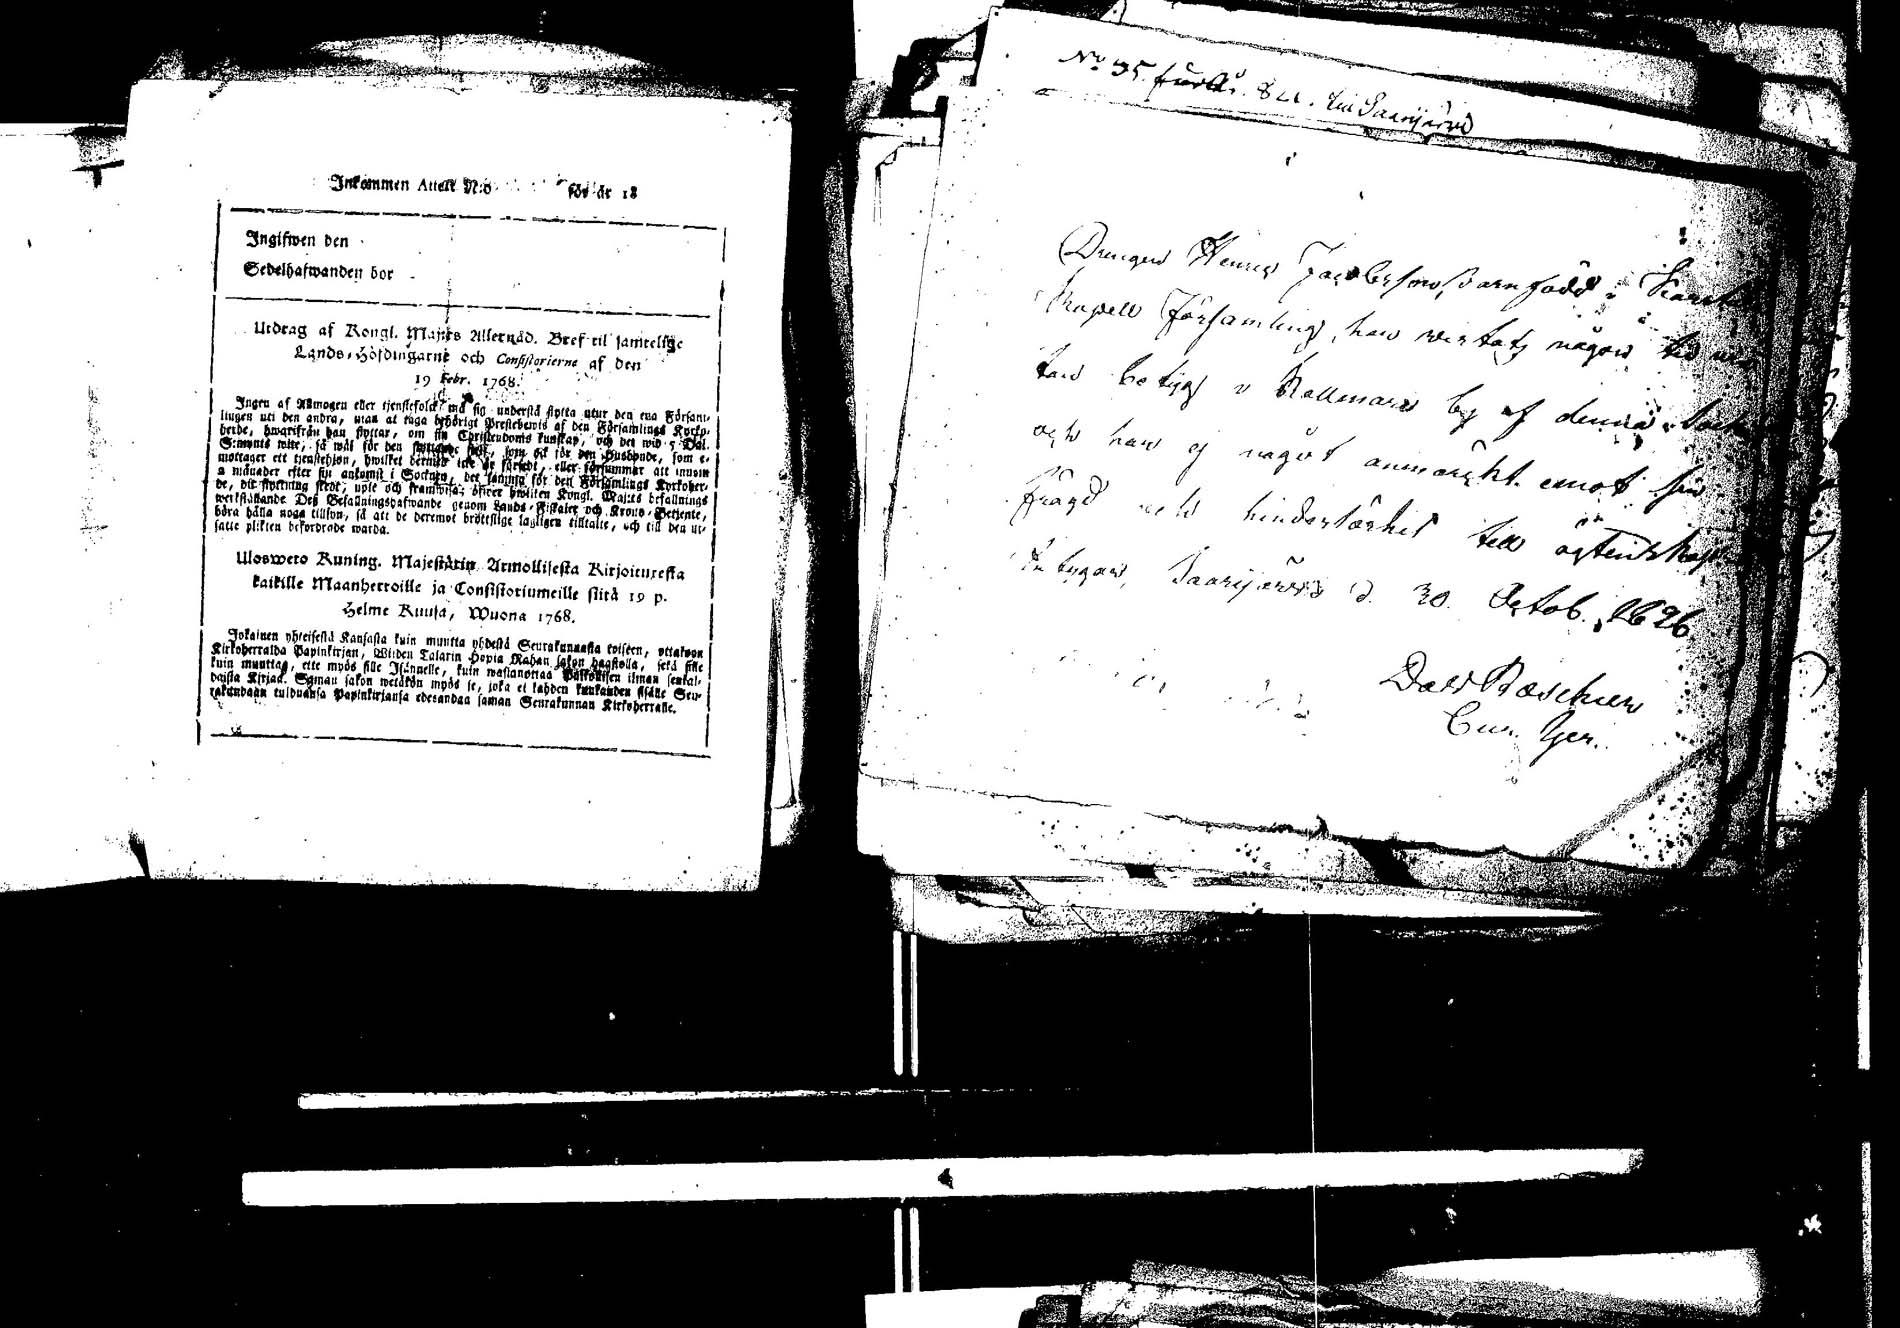 Inkommen Attest N:o för år 18
Ingifwen den
Sedelhafwanden bor
Utdrag af Kongl. Maj:ts Allernåd. Bref til samtelige
Lands-Höfdingarne och Consistorierne af den
19 Febr. 1768.
Ingen af Allmogen eller tjenstefolck må sig understå flytta utur den ena Försam-
lingen uti den andra, utan at taga behörigt Prestebewis af den Församlings Kyrko-
herde, hwarifrån han flyttar, om sin Christendoms kunskap, och det wid 5 Dal.
S:mynts wite, så wäl för den som ock för den Husbonde, som e-
mottager ett tjenstehjon, hwilket dermed icke är försedt, eller försummar att innom
2 månader efter sin ankomst i Socknen, det samma för den Församlings Kyrkoher-
de, dit flyttning skedt, upte och framwisa; öfwer hwilket Kongl. Maj:ts befallnings
werkställande Deß Befallningshafwande genom Lands-Fiskaler och Krono-Betjente,
böra hålla noga tillsyn, så att de deremot bröttslige lagligen tilltalte, och till den ut-
satte plikten befordrade warda.
Ulosweto Kuning. Majestätin Armollisesta Kirjoituxesta
kaikille Maanherroille ja Consistoriumeille siitä 19 p.
Helme Kuusa, Wuona 1768.
Jokainen yhteisestä Kansasta kuin muutta yhdestä Seurakunnasta toiseen, ottakoon
Kirkoherralda Papinkirjan, Wiiden Talarin Hopia Rahan sakon haastolla, sekä sille
kuin muuttaa, ette myös sille Isännelle, kuin wastanottaa Palkollisen ilman senkal-
daista Kirjaa. Saman sakon wetäkön myös se, joka ei kahden kuukauden sisälle Seu-
rakundaan tulduansa Papinkirjansa edesandaa saman Seurakunnan Kirkoherralle.
No 35 för år 821. till Saarijärvi
Drengen Henric Jacobsson, Barnfödd i
Kapell Församling, har vistats någon tid
tan betyg i Kallmari by af denna Sock
och har ej något anmärkt emot sin
frägd och hinderlöshet till ägtenskap
Saarijärvi d. 30 Octob.